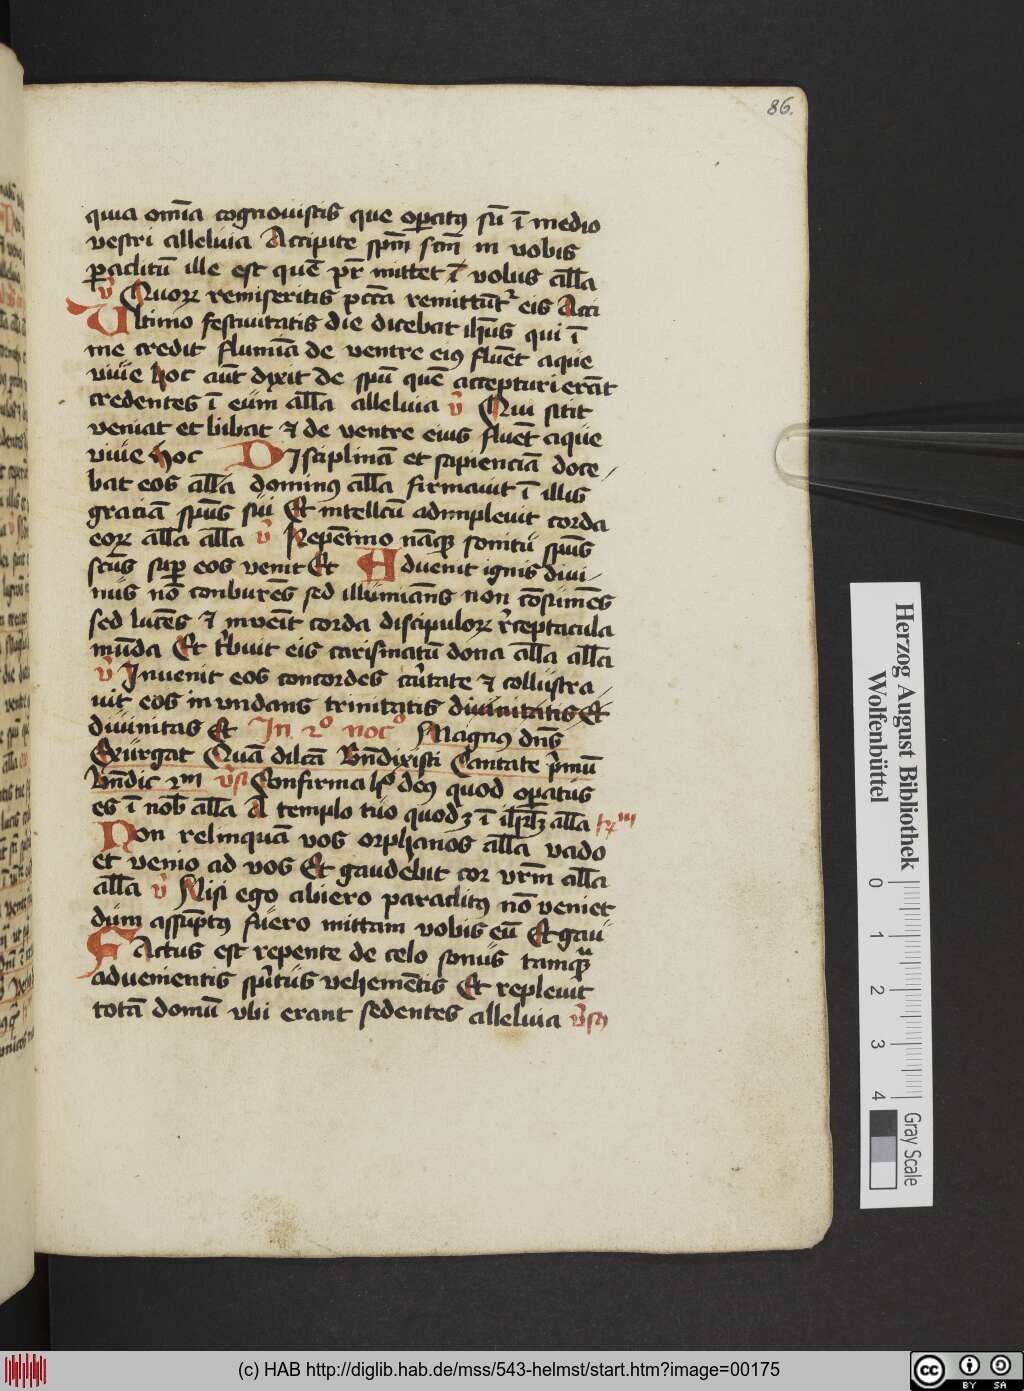 86.
quia om̄ia cognouistis que opatꝯ sū ī medio
vestri alleluia Accipite spm̄ scm̄ in vobis
paclitū ille est quē pr̄ mittet ī vobis all̄a
v̄ Quoꝝ remiseritis pcc̄a remittūt᷑ eis Acci
Ultimo festiuitatis die dicebat ih̄us qui ī
me credit flumīa de ventre eiꝯ fluēt aque
viue hoc aūt dixit de spū quē accepturi erāt
credentes ī eum all̄a alleluia v̄ Qui sitit
veniat et bibat ⁊ de ventre eius fluēt aque
viue hoc Disciplinā et sapienciā doce
bat eos all̄a dominꝯ all̄a firmauit ī illis
graciā sp̄us sui Et intellc̄ū adimpleuit corda
eoꝝ all̄a all̄a v̄ Repētino nāqꝫ sonitu sp̄us
sc̄us sup eos venit Et Aduenit ignis diui
nus nō conburēs sed illumiāns non cōsumēs
sed lucēs ⁊ inuēit corda discipuloꝝ r̄ceptacula
mūda Et t̄buit eis carismatū dona all̄a all̄a
v̄ Inuenit eos concordes cāritate ⁊ collustra
uit eos inundans trinitatis diuinitatis Et
diuinitas Et In 2º nocº Magnꝯ dn̄s
Exurgat Quā dilc̄a Bn̄dixisti Cantate p̄mū
Bn̄dic 2m v̄s Confirma hͦ deꝯ quod opatus
es ī nob̄ all̄a A templo tuo quodꝫ ī ihrlꝫ all̄a
Non relinquā vos orphanos all̄a vado
et venio ad vos Et gaudebit cor vr̄m all̄a
all̄a v̄ Nisi ego abiero paraclitꝯ nō veniet
dum assūptꝯ fuero mittam vobis eū Et gau
Factus est repente de celo sonus tamqᷓ
aduenientis sp̄itus vehemētis Et repleuit
totā domū vbi erant sedentes alleluia v̄sꝯ
Herzog August Bibliothek
Wolfenbüttel
0 1 2 3 4
Gray Scale
(c) HAB http://diglib.hab.de/mss/543-helmst/start.htm?image=00175
cc BY SA